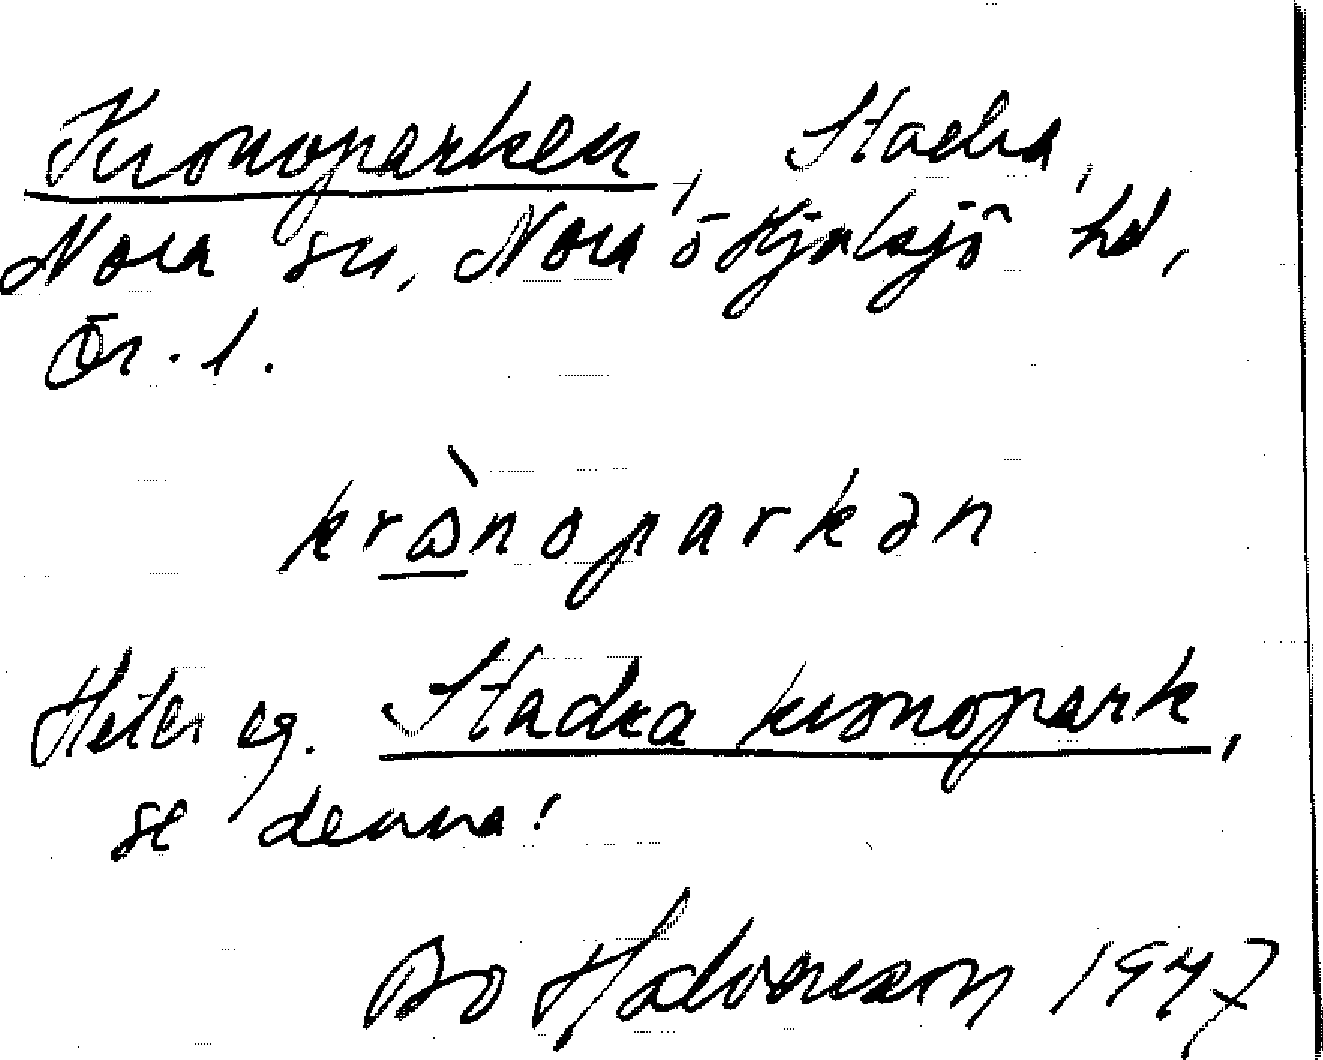 Kronoparken, Stadra,
Nora sn, Nora ō Hjulsjö hd,
Ör. l.
krò̱noparkən
Heter eg. Stadra kronopark,
se denna!
Bo Halvarson 1947